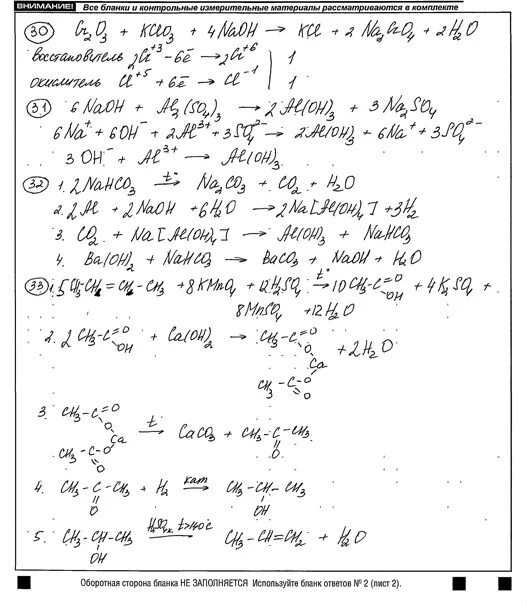 ВНИМАНИЕ! Все бланки и контрольные измерительные материалы рассматриваются в комплекте
30 Cr₂O₃ + KClO₃ + 4NaOH → KCl + 2Na₂CrO₄ + 2H₂O
восстановитель 2Cr⁺³ - 6ē → 2Cr⁺⁶ | 1
окислитель Cl⁺⁵ + 6ē → Cl⁻¹ | 1
31 6NaOH + Al₂(SO₄)₃ → 2Al(OH)₃ + 3Na₂SO₄
6Na⁺ + 6OH⁻ + 2Al³⁺ + 3SO₄²⁻ → 2Al(OH)₃ + 6Na⁺ + 3SO₄²⁻
3OH⁻ + Al³⁺ → Al(OH)₃
32 1. 2NaHCO₃ t° → Na₂CO₃ + CO₂ + H₂O
2. 2Al + 2NaOH + 6H₂O → 2Na[Al(OH)₄] + 3H₂
3. CO₂ + Na[Al(OH)₄] → Al(OH)₃ + NaHCO₃
4. Ba(OH)₂ + NaHCO₃ → BaCO₃ + NaOH + H₂O
33 1. 5CH₃-CH=CH-CH₃ + 8KMnO₄ + 12H₂SO₄ t° → 10CH₃-C=O OH + 4K₂SO₄ +
8MnSO₄ + 12H₂O
2. 2CH₃-C=O OH + Ca(OH)₂ → CH₃-C=O O Ca CH₃-C-O O + 2H₂O
3. CH₃-C=O O Ca CH₃-C-O O t → CaCO₃ + CH₃-C-CH₃ O
4. CH₃-C-CH₃ O + H₂ кат → CH₃-CH-CH₃ OH
5. CH₃-CH-CH₃ OH H₂SO₄ к. t>140°C → CH₃-CH=CH₂ + H₂O
Оборотная сторона бланка НЕ ЗАПОЛНЯЕТСЯ Используйте бланк ответов № 2 (лист 2).